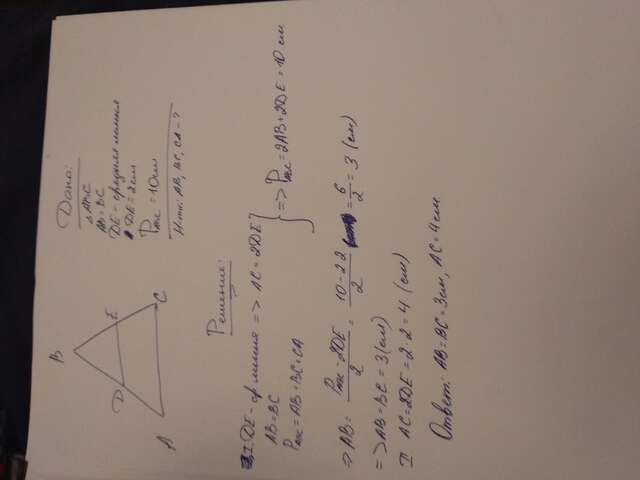 B
Дано:
△ABC
AB=BC
D E
DE - средняя линия
DE = 2см
A C
Pавс = 10см
Н-ти: AB, BC, CA - ?
Решение:
I. DE - ср линия => AC = 2DE
AB=BC
Pавс = AB + BC + CA
=> Pавс = 2AB + 2DE = 10 см
=> AB = (Pавс - 2DE)/2 = (10 - 2·2)/2 = 6/2 = 3 (см)
=> AB = BC = 3 (см)
II AC = 2DE = 2 · 2 = 4 (см)
Ответ: AB = BC = 3см, AC = 4см.